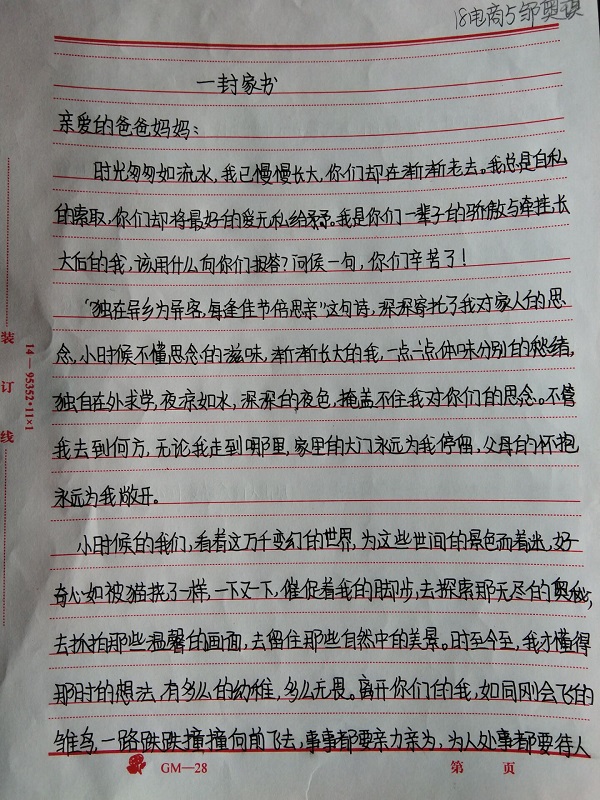 18电商5邹奥琪
一封家书
亲爱的爸爸妈妈：
时光匆匆如流水，我已慢慢长大，你们却在渐渐老去。我总是自私
的索取，你们却将最好的爱无私给予。我是你们一辈子的骄傲与牵挂，长
大后的我，该用什么向你们报答？问候一句，你们辛苦了！
“独在异乡为异客，每逢佳节倍思亲”这句诗，深深寄托了我对家人的思
念。小时候不懂思念的滋味，渐渐长大的我，一点一点体味分别的愁绪，
独自在外求学，夜凉如水，深深的夜色，掩盖不住我对你们的思念。不管
我去到何方，无论我走到哪里，家里的大门永远为我停留，父母的怀抱
永远为我敞开。
小时候的我们，看着这万千变幻的世界，为这些世间的景色而着迷，好
奇心如被猫挠了一样，一下又一下，催促着我的脚步，去探索那无尽的奥秘，
去抓拍那些温馨的画面，去留住那些自然中的美景。时至今至，我才懂得
那时的想法，有多么的幼稚，多么无畏。离开你们的我，如同刚会飞的
雏鸟，一路跌跌撞撞向前飞去，事事都要亲力亲为，为人处事都要待人
装订线
14—95352·11×1
GM—28
第 页